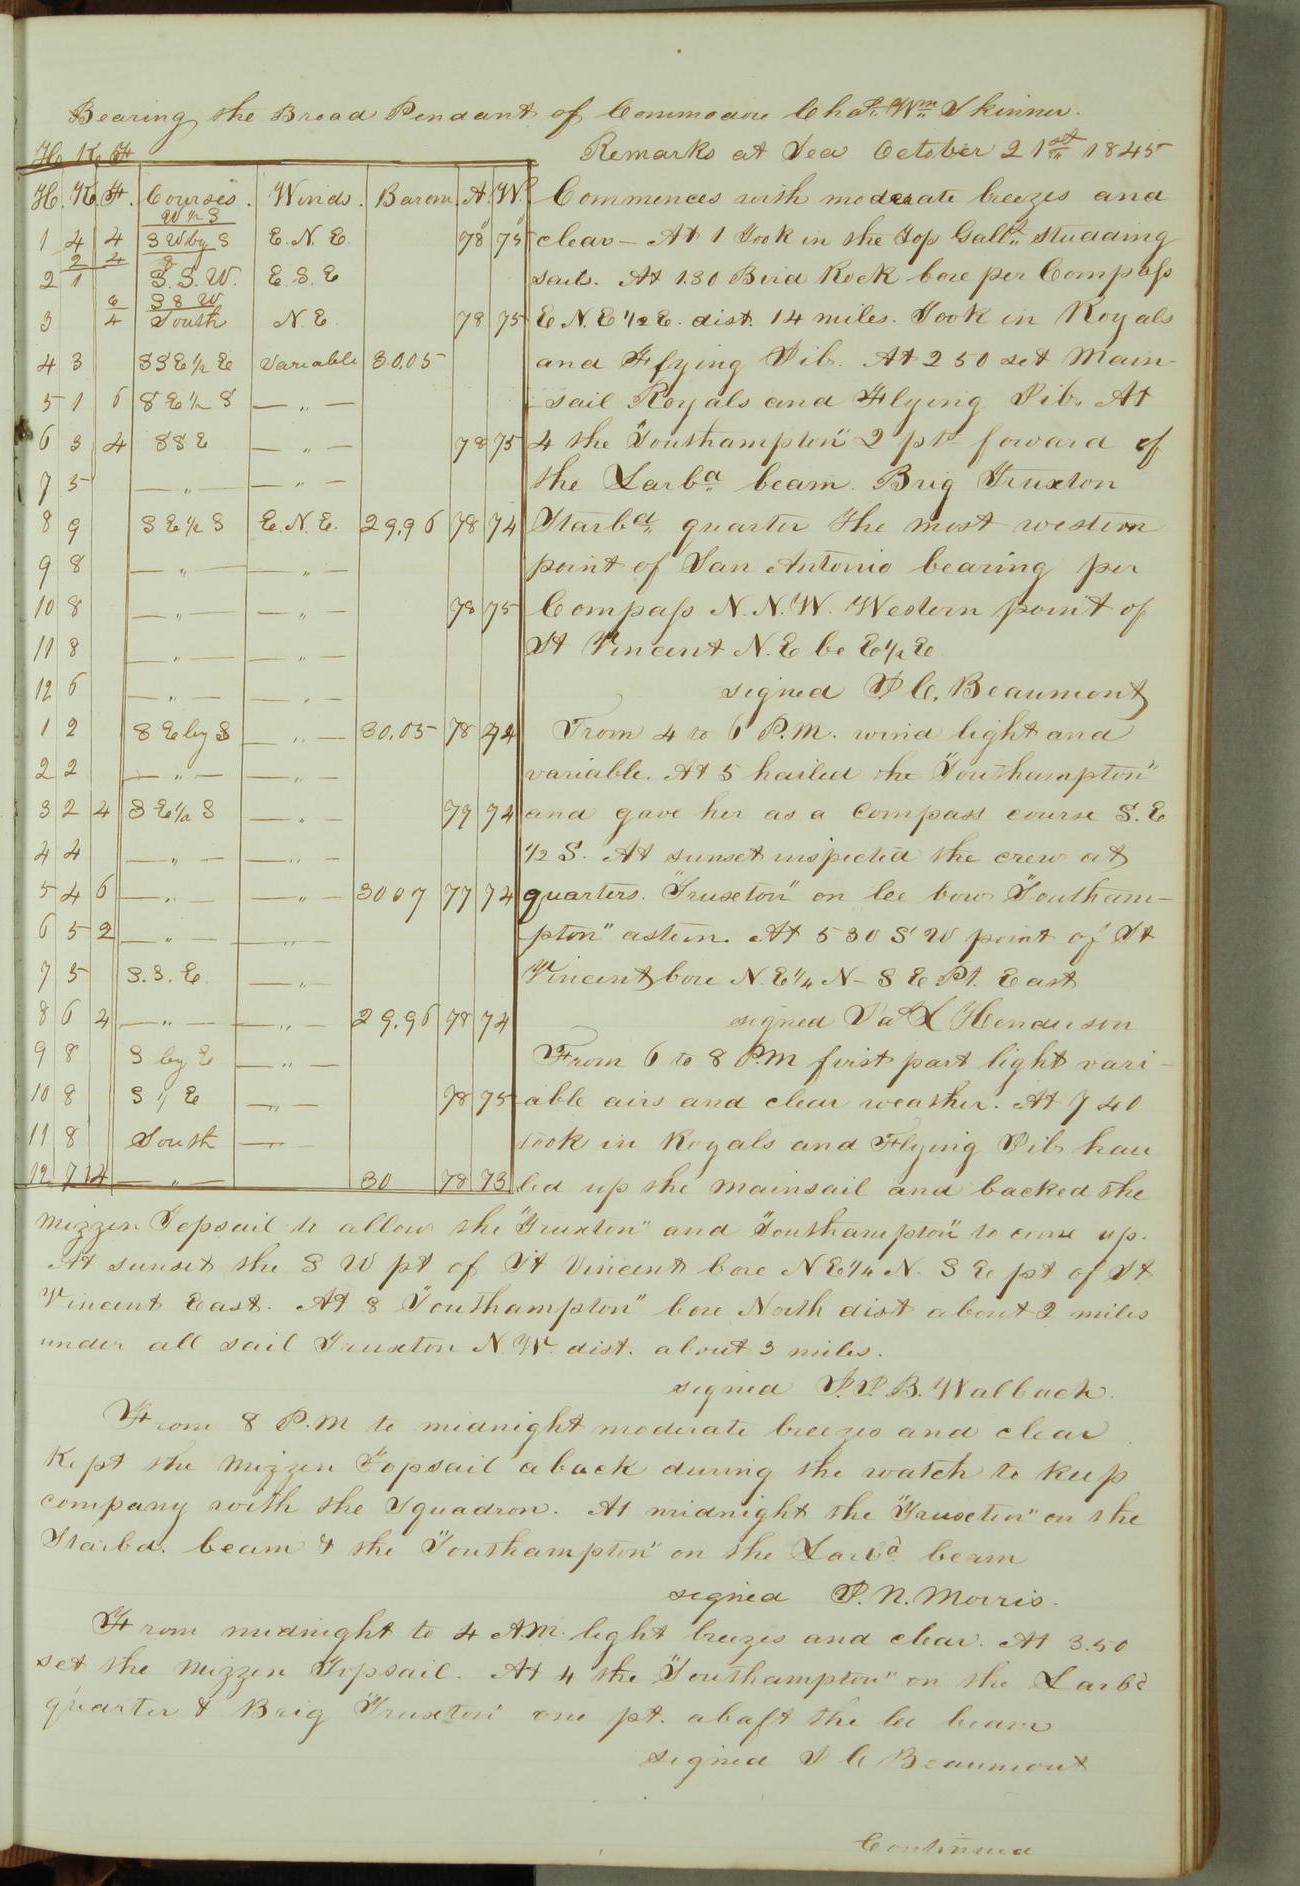 Bearing the Broad Pendant of Commodore Chas. Wm. Skinner.
Remarks at Sea October 21st 1845
H. K. F.
H. K. F. Courses. Winds. Barom. A. W.
W ½ S
1 4 4 S W by S E. N. E. 78 75
2 4 S
2 1 S. S. W. E. S. E
6 S S W
3 4 South N. E. 78 75
4 3 S S E ½ E Variable 30.05
5 1 6 S E ½ S — " —
6 3 4 S S E — " — 78 75
7 5 — " — — " —
8 9 S E ½ S E. N. E. 29.96 78 74
9 8 — " — — " —
10 8 — " — — " — 78 75
11 8 — " — — " —
12 6 — " — — " —
1 2 S E by S — " — 30.05 78 74
2 2 — " — — " —
3 2 4 S E ½ S — " — 79 74
4 4 — " — — " —
5 4 6 — " — — " — 30 07 77 74
6 5 2 — " — — " —
7 5 S. S. E. — " —
8 6 4 — " — — " — 29.96 78 74
9 8 S by E — " —
10 8 S " E — " — 78 75
11 8 South — " —
12 7 4 — " — 30 78 73
Commences with moderate breezes and
clear — At 1 Took in the Top Gallt. studding
sails. At 1.30 Bird Rock bore per Compass
E. N. E ½ E. dist. 14 miles. Took in Royals
and Flying Jib. At 2 50 set Main-
sail Royals and Flying Jib. At
4 the "Southampton" 2 pts forward of
the Larbd. beam. Brig Truxton
Starbd. quarter The most western
point of San Antonio bearing per
Compass N. N. W. Western point of
St Vincent N. E be E ½ E
signed J C. Beaumont
From 4 to 6 P.M. wind light and
variable. At 5 hailed the "Southampton"
and gave her as a compass course S. E
½ S. At sunset inspected the crew at
quarters. "Truxton" on lee bow "Southam-
pton" astern. At 5 30 S W point of St
Vincent bore N. E ¼ N – S E Pt. East
signed Jas L Henderson
From 6 to 8 P.M first part light vari-
able airs and clear weather. At 7 40
took in Royals and Flying Jib hau
led up the mainsail and backed the
Mizzen Topsail to allow the "Truxton" and "Southampton" to come up.
At sunset the S W pt of St Vincent bore N E ¼ N. S E pt of St
Vincent East. At 8 "Southampton" bore North dist about 2 miles
under all sail Truxton N. W. dist. about 3 miles.
signed J. J. B. Walbach.
From 8 P.M to midnight moderate breezes and clear
Kept the Mizzen Topsail aback during the watch to keep
company with the Squadron. At midnight the "Truxton" on the
Starbd. beam & the "Southampton" on the Larbd beam
signed P. N. Morris.
From midnight to 4 A.M. light breezes and clear. At 3.50
set the Mizzen Topsail. At 4 the "Southampton" on the Larbd
quarter & Brig "Truxton" one pt. abaft the lee beam
signed J C Beaumont
Continued